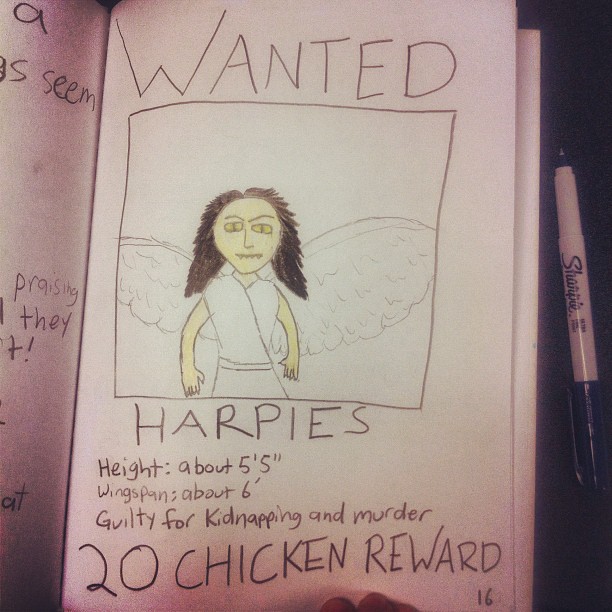 a
gs seem
praising
they
t!
at
WANTED
HARPIES
Height: about 5'5"
Wingspan: about 6'
Guilty for Kidnapping and murder
20 CHICKEN REWARD
16
Sharpie